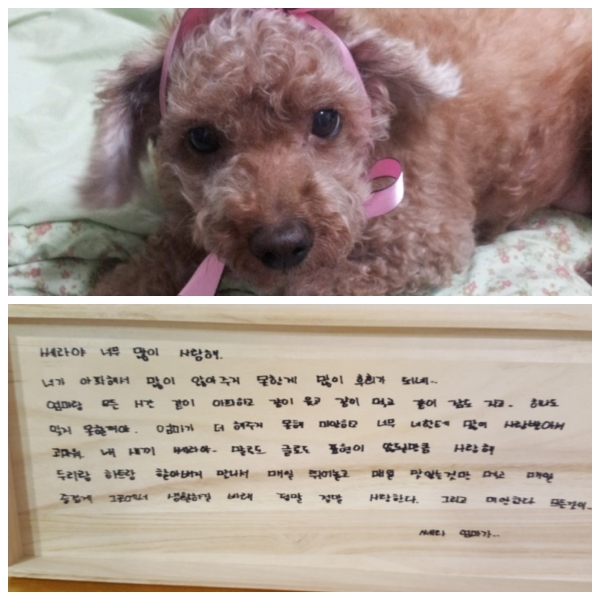 쎄라야 너무 많이 사랑해.
너가 아파해서 많이 안아주지 못한게 많이 후회가 되네..
엄마랑 모든 시간 같이 아파하고 같이 웃고 같이 먹고 같이 잠도 자고. 하나도
잊지 못할꺼야. 엄마가 더 해주지 못해 미안하고 너무 너한테 많이 사랑받아서
고마워 내 새끼 쎄라야- 말로도 글로도 표현이 안될만큼 사랑해
두리랑 하트랑 할아버지 만나서 매일 뛰어놀고 매일 맛있는것만 먹고 매일
즐겁게 그곳에서 생활하길 바래 정말 정말 사랑한다. 그리고 미안한다 모든것이..
쎄라 엄마가..